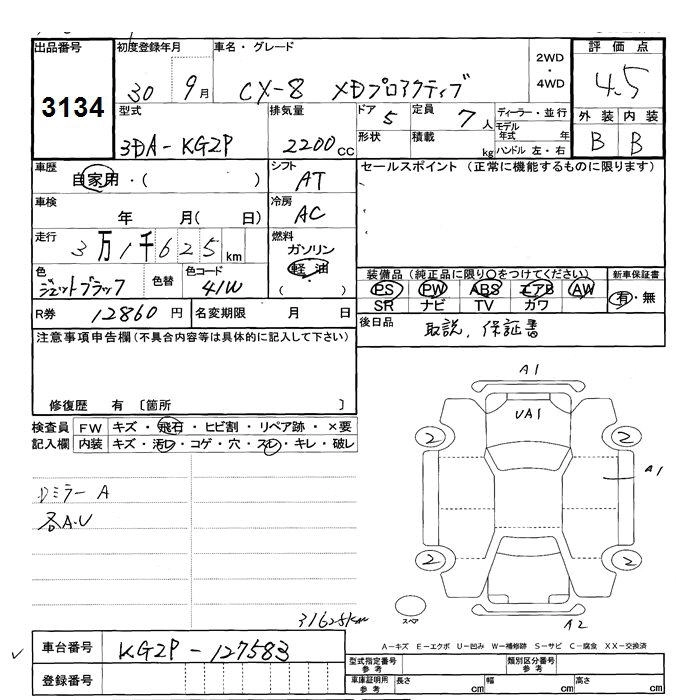 出品番号 初度登録年月 車名・グレード 2WD・4WD 評価点
3134 30 9月 CX-8 XDプロアクティブ 4.5
型式 排気量 ドア 5 定員 7人 ディーラー・並行 外装 内装
3DA-KG2P 2200cc 形状 積載 kg モデル年式 年 B B
ハンドル 左・右
車歴 自家用・( ) シフト AT セールスポイント (正常に機能するものに限ります)
車検 年 月( 日) 冷房 AC
走行 3万1千625km 燃料 ガソリン
軽油
( )
色 ジェットブラック 色替 色コード 41W
装備品(純正品に限り○をつけてください) 新車保証書
PS PW ABS エアB AW 有・無
SR ナビ TV カワ
R券 12860円 名変期限 月 日 後日品 取説、保証書
注意事項申告欄(不具合内容等は具体的に記入して下さい)
修復歴 有 〔箇所 〕
検査員 FW キズ・飛石・ヒビ割・リペア跡・×要
記入欄 内装 キズ・汚レ・コゲ・穴・スレ・キレ・破レ
Dミラー A
各A.U
A1
UA1
2 2
A1
2 2
スペア
A2
31625km
車台番号 KG2P-127583
登録番号
A-キズ E-エクボ U-凹み W-補修跡 S-サビ C-腐食 XX-交換済
型式指定番号 参考 類別区分番号 参考
車庫証明用 参考 長さ cm 幅 cm 高さ cm